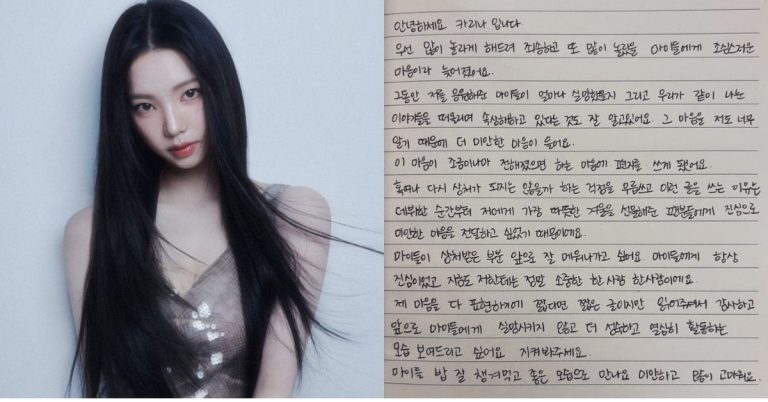 안녕하세요 카리나 입니다
우선 많이 놀라게 해드려 죄송하고 또 많이 놀랐을 마이들에게 조심스러운
마음이라 늦어졌어요.
그동안 저를 응원해준 마이들이 얼마나 실망했을지 그리고 우리가 같이 나눈
이야기들을 떠올리며 속상해하고 있다는 것도 잘 알고있어요 그 마음을 저도 너무
알기 때문에 더 미안한 마음이 들어요.
이 마음이 조금이나마 전해졌으면 하는 마음에 편지를 쓰게 됐어요.
혹여나 다시 상처가 되지는 않을까 하는 걱정을 무릅쓰고 이런 글을 쓰는 이유는
데뷔한 순간부터 저에게 가장 따뜻한 겨울을 선물해준 팬분들에게 진심으로
미안한 마음을 전달하고 싶었기 때문이에요.
마이들이 상처받은 부분 앞으로 잘 메워나가고 싶어요. 마이들에게 항상
진심이었고 지금도 저한테는 정말 소중한 한사람 한사람이에요.
제 마음을 다 표현하기에 짧다면 짧은 글이지만 읽어주셔서 감사하고
앞으로 마이들에게 실망시키지 않고 더 성숙하고 열심히 활동하는
모습 보여드리고 싶어요 지켜봐주세요.
마이들 밥 잘 챙겨먹고 좋은 모습으로 만나요 미안하고 많이 고마워요.